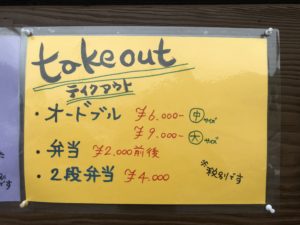 takeout
テイクアウト
・オードブル ¥6.000~ 中サイズ
¥9.000~ 大サイズ
・弁当 ¥2.000前後
・2段弁当 ¥4.000
※税別です